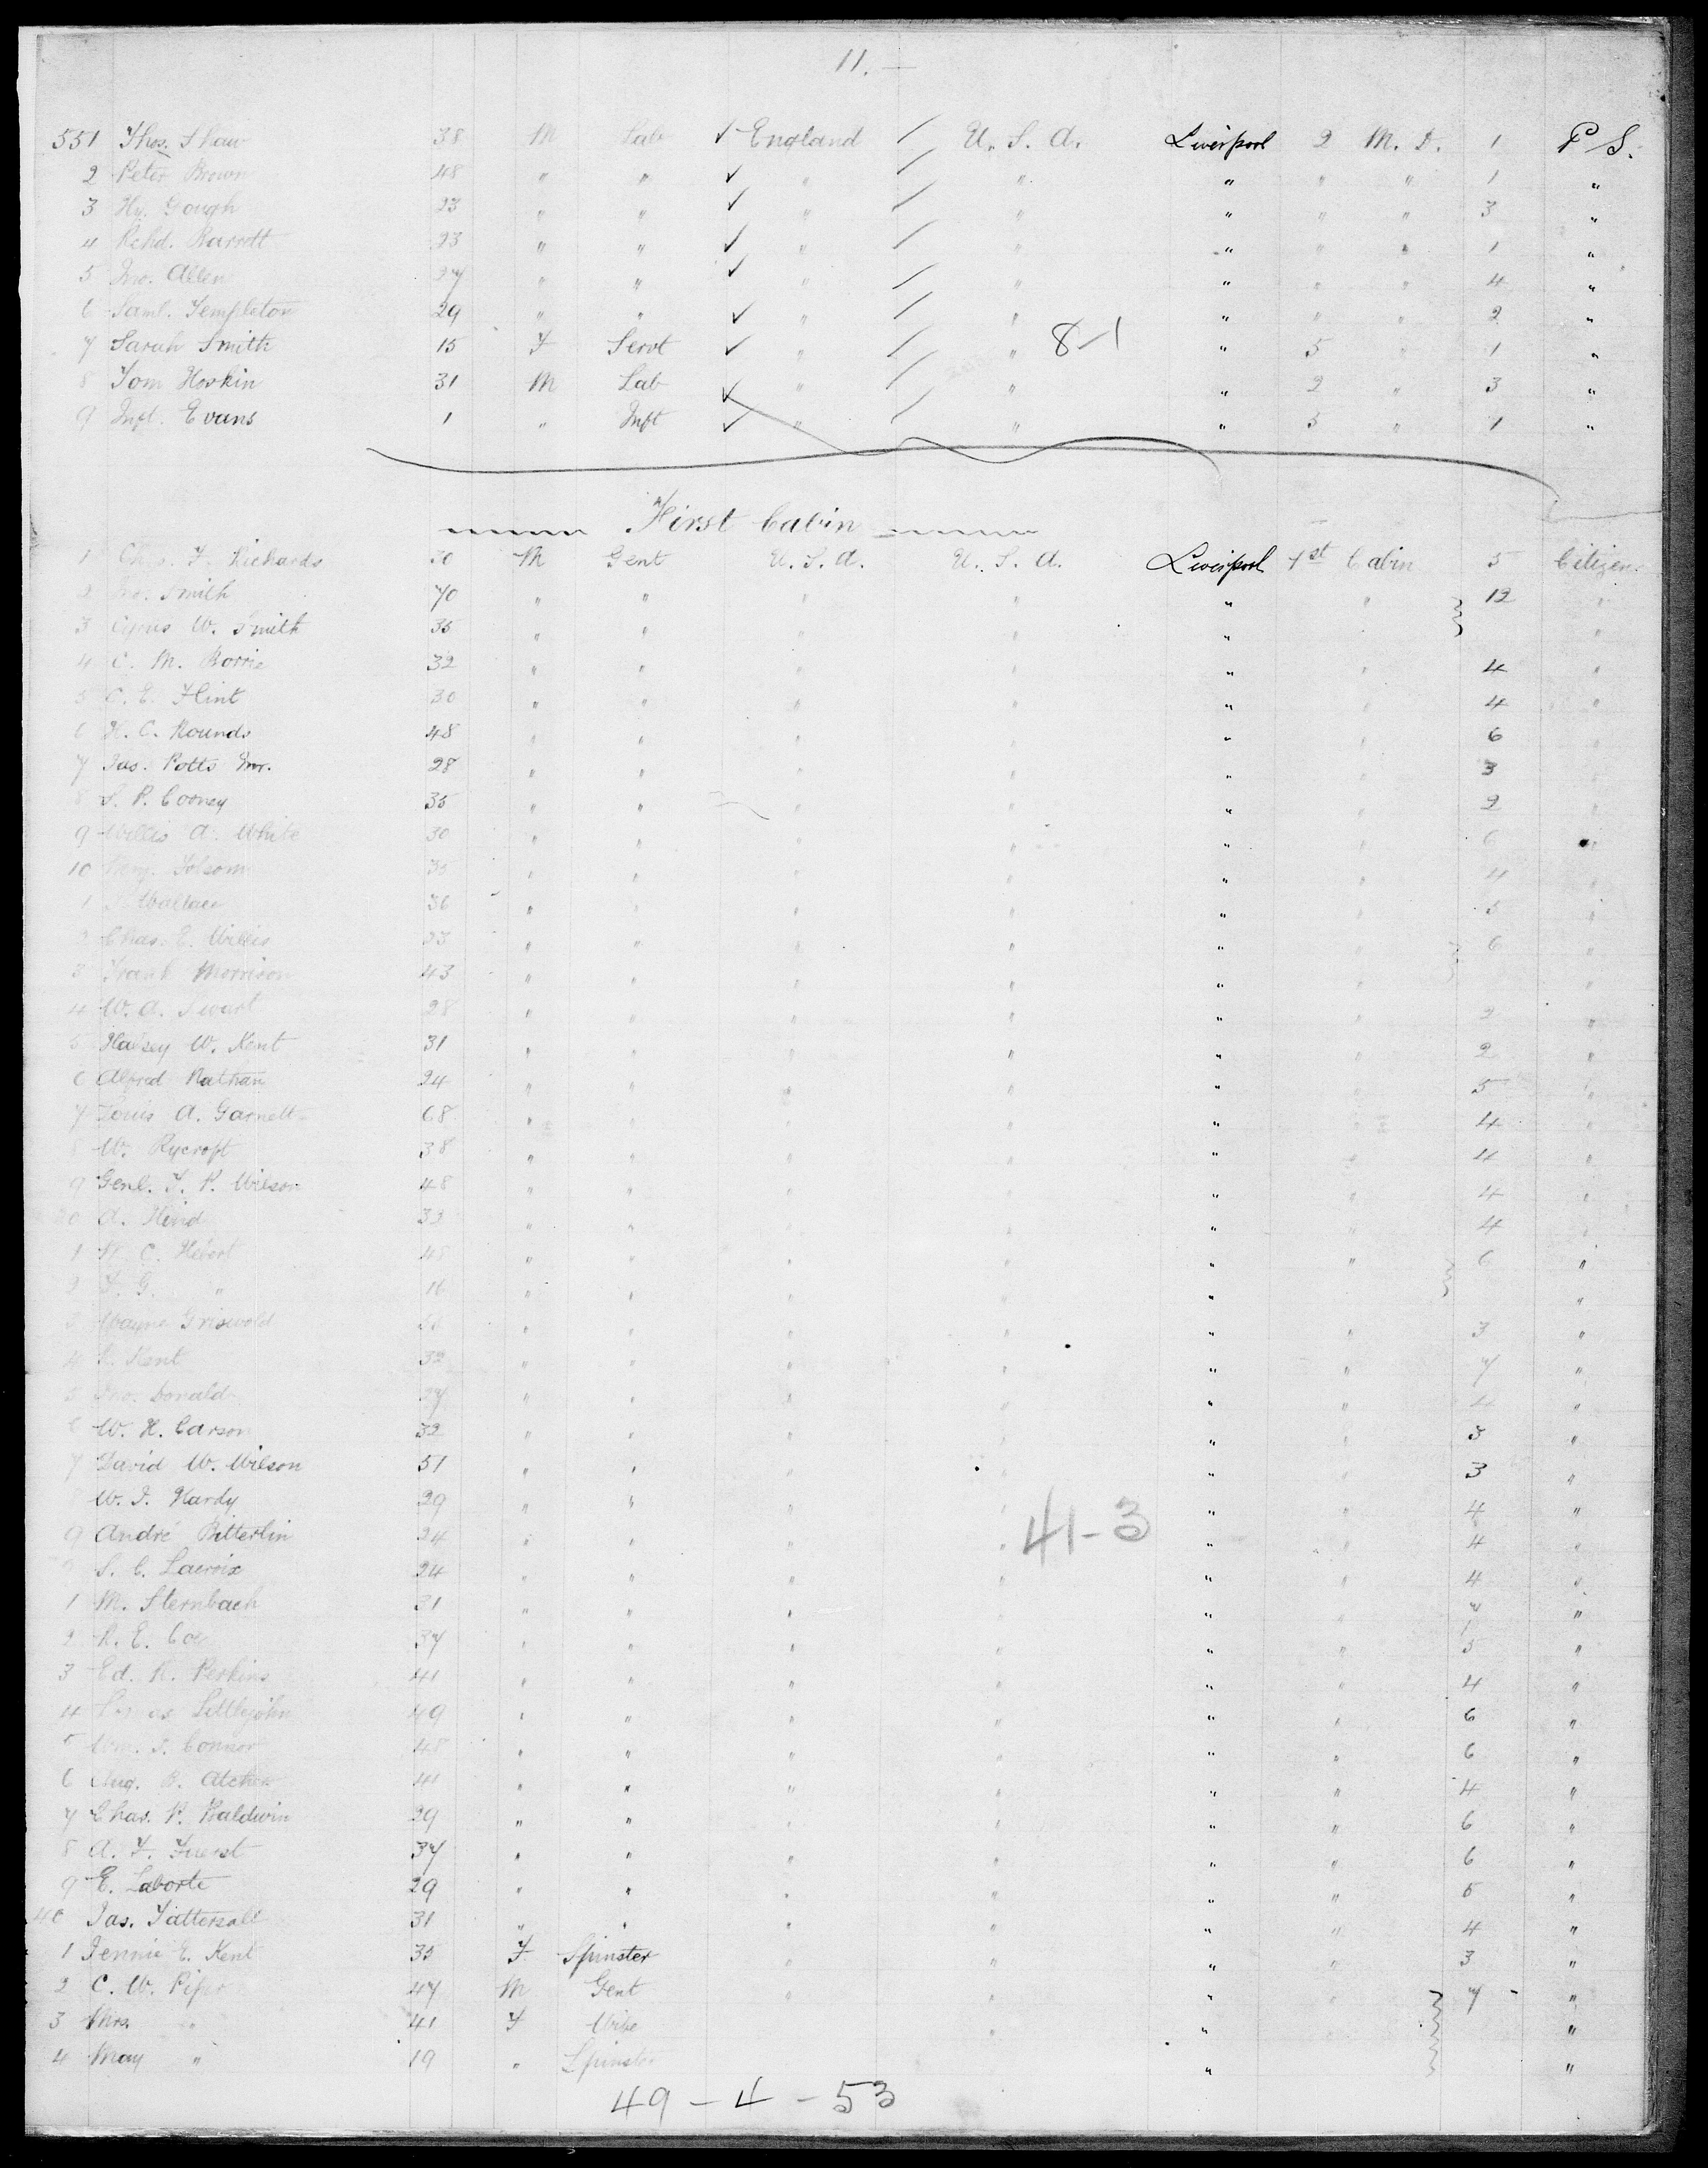 11. —
551 Thos. Shaw 38 M Lab ✓ England / U. S. A. Liverpool 2 M. D. 1 P S.
2 Peter Brown 48 " " ✓ " / " " " " 1 "
3 Hy. Gough 23 " " ✓ " / " " " " 3 "
4 Rchd. Barrott 23 " " ✓ " / " " " " 1 "
5 Jno. Allen 27 " " ✓ " / " " " " 4 "
6 Saml. Templeton 29 " " ✓ " / " " " " 2 "
7 Sarah Smith 15 F Servt ✓ " / " 8-1 " 5 " 1 "
8 Tom Hoskin 31 M Lab ✓ " / " " 2 " 3 "
9 Inft. Evans 1 " Inft ✓ " / " " 5 " 1 "
First Cabin
1 Chas. F. Richards 30 M Gent U. S. A. U. S. A. Liverpool 1st Cabin 5 Citizen
2 Jno. Smith 70 " " " " " " 12 "
3 Cyrus W. Smith 35 " " " " " "
4 C. M. 32 " " " " " " 4 "
5 C. E. Flint 30 " " " " " " 4 "
6 H. C. Rounds 48 " " " " " " 6 "
7 Jas. Potts Jnr. 28 " " " " " " 3 "
8 S. P. Cooney 35 " " " " " " 2 "
9 Willis A. White 30 " " " " " " 6 "
10 Folsom 35 " " " " " " 4 "
1 Wallace 36 " " " " " " 5 "
2 Chas. E. Willis 23 " " " " " " 6 "
3 Frank Morrison 43 " " " " " " "
4 W. A. Swart 28 " " " " " " 2 "
5 Halsey W. Kent 31 " " " " " " 2 "
6 Alfred Nathan 24 " " " " " " 5 "
7 Louis A. Garnett 68 " " " " " " 4 "
8 W. Rycroft 38 " " " " " " 4 "
9 Genl. J. P. Wilson 48 " " " " " " 4 "
20 A. Hind 33 " " " " " " 4 "
1 C. Hebert 45 " " " " " " 6 "
2 F. G. " 16 " " " " " "
3 Wayne Griswold " " " " " " 3 "
4 Kent 32 " " " " " " 7 "
5 Jno. Donald 27 " " " " " " 4 "
6 W. H. Carson 32 " " " " " " 3 "
7 David W. Wilson 51 " " " " " " 3 "
W. J. Hardy 29 " " " " " " 4 "
9 André Bitterlin 24 " " " " 41-3 " " 4 "
S. C. Lacroix 24 " " " " " " 4 "
1 M. Sternbach 31 " " " " " "
2 R. E. Coe 37 " " " " " " 5 "
3 Ed. H. Perkins 41 " " " " " " 4 "
4 Littlejohn 49 " " " " " " 6 "
5 Wm. J. Connor 48 " " " " " " 6 "
6 Aug. B. 41 " " " " " " 4 "
7 Chas. P. Baldwin 29 " " " " " " 6 "
8 A. F. Fuerst 37 " " " " " " 6 "
9 E. Laborte 29 " " " " " " 5 "
40 Jas. Tattersall 31 " " " " " " 4 "
1 Jennie E. Kent 35 F Spinster " " " " 3 "
2 C. W. Piper 47 M Gent " " " " 7 "
3 Mrs. " 41 F Wife " " "
4 May " 19 " Spinster " "
49 - 4 - 53